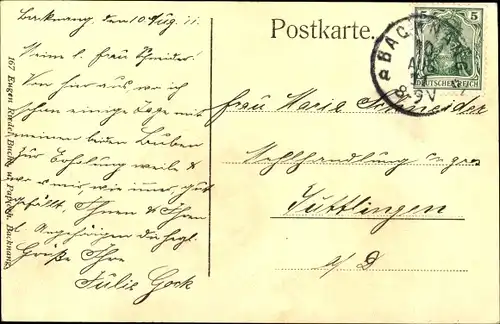 Backnang, den 10. Aug. 11.
Meine l. Frau Schneider!
Von hier aus, wo ich
schon einige Tage mit
meinen beiden Buben
zur Erholung weile &
wo es mir, wie immer, gut
gefällt, Ihnen & Ihren
l. Angehörigen die herzl.
Grüße Ihre
Julie Gock
167 Eugen Rieder, Buch- u. Papierh. Backnang
Postkarte.
5 5
DEUTSCHES REICH
BACKNANG
10
AUG
8-9V
Frau Marie Schneider
Mehlhandlung en gros
Tuttlingen
a/D